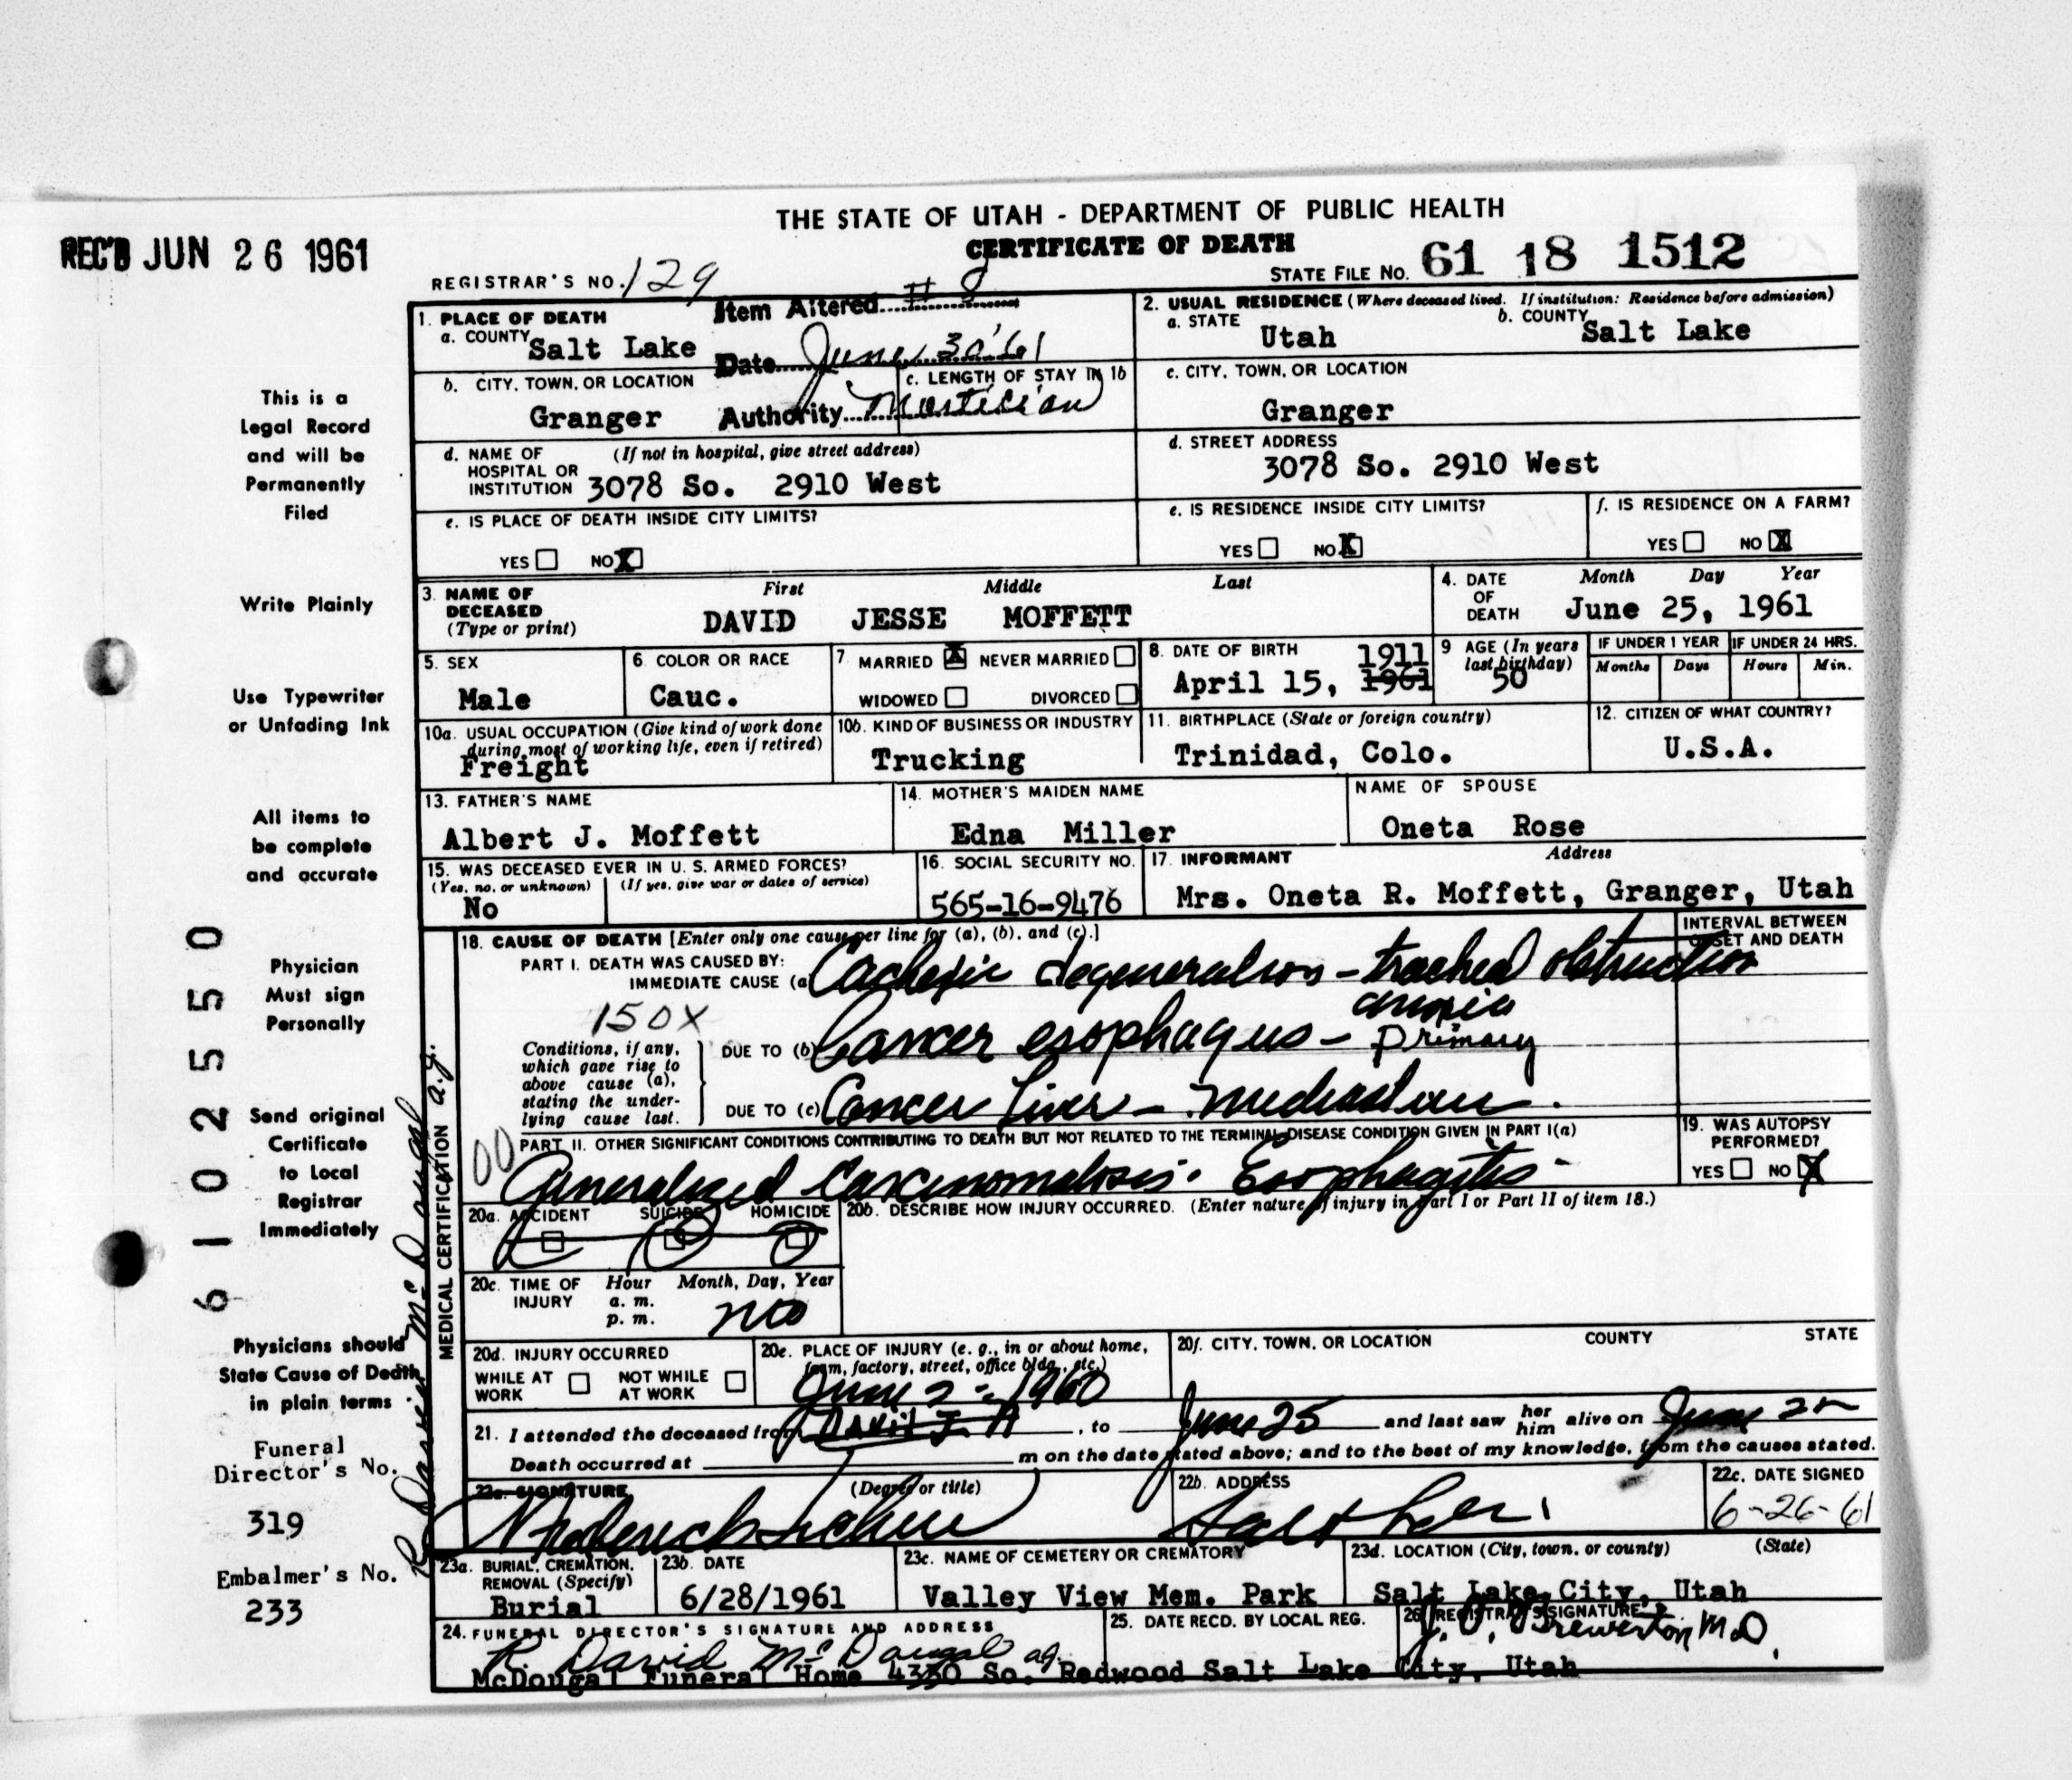 THE STATE OF UTAH - DEPARTMENT OF PUBLIC HEALTH
CERTIFICATE OF DEATH
REC'D JUN 26 1961
REGISTRAR'S NO. 129
STATE FILE NO. 61 18 1512
Item Altered # 8
Date June 30 '61
Authority Mortician
1. PLACE OF DEATH
a. COUNTY Salt Lake
2. USUAL RESIDENCE (Where deceased lived. If institution: Residence before admission)
a. STATE Utah b. COUNTY Salt Lake
b. CITY, TOWN, OR LOCATION Granger
c. LENGTH OF STAY IN 1b
c. CITY, TOWN, OR LOCATION Granger
d. NAME OF HOSPITAL OR INSTITUTION (If not in hospital, give street address) 3078 So. 2910 West
d. STREET ADDRESS 3078 So. 2910 West
e. IS PLACE OF DEATH INSIDE CITY LIMITS? YES NO X
e. IS RESIDENCE INSIDE CITY LIMITS? YES NO X
f. IS RESIDENCE ON A FARM? YES NO X
3. NAME OF DECEASED (Type or print)
First Middle Last
DAVID JESSE MOFFETT
4. DATE OF DEATH Month Day Year
June 25, 1961
5. SEX Male
6. COLOR OR RACE Cauc.
7. MARRIED X NEVER MARRIED
WIDOWED DIVORCED
8. DATE OF BIRTH 1911
April 15, 1961
9 AGE (In years last birthday) 50
IF UNDER 1 YEAR Months Days
IF UNDER 24 HRS. Hours Min.
10a. USUAL OCCUPATION (Give kind of work done during most of working life, even if retired) Freight
10b. KIND OF BUSINESS OR INDUSTRY Trucking
11. BIRTHPLACE (State or foreign country) Trinidad, Colo.
12. CITIZEN OF WHAT COUNTRY? U.S.A.
13. FATHER'S NAME Albert J. Moffett
14. MOTHER'S MAIDEN NAME Edna Miller
NAME OF SPOUSE Oneta Rose
15. WAS DECEASED EVER IN U. S. ARMED FORCES?
(Yes, no, or unknown) (If yes, give war or dates of service)
No
16. SOCIAL SECURITY NO. 565-16-9476
17. INFORMANT Address
Mrs. Oneta R. Moffett, Granger, Utah
18. CAUSE OF DEATH [Enter only one cause per line for (a), (b), and (c).]
INTERVAL BETWEEN ONSET AND DEATH
PART I. DEATH WAS CAUSED BY:
IMMEDIATE CAUSE (a) Cachexic degeneration - tracheal obstruction
anoxia
150X
Conditions, if any, which gave rise to above cause (a), stating the underlying cause last.
DUE TO (b) Cancer esophagus - primary
DUE TO (c) Cancer Liver -
00
PART II. OTHER SIGNIFICANT CONDITIONS CONTRIBUTING TO DEATH BUT NOT RELATED TO THE TERMINAL DISEASE CONDITION GIVEN IN PART I(a)
Generalized Carcinomatosis. Esophagitis -
19. WAS AUTOPSY PERFORMED? YES NO X
20a. ACCIDENT SUICIDE HOMICIDE
20b. DESCRIBE HOW INJURY OCCURRED. (Enter nature of injury in Part I or Part II of item 18.)
20c. TIME OF INJURY Hour Month, Day, Year
a. m.
p. m. no
20d. INJURY OCCURRED
WHILE AT WORK NOT WHILE AT WORK
20e. PLACE OF INJURY (e. g., in or about home, farm, factory, street, office bldg., etc.)
20f. CITY, TOWN, OR LOCATION COUNTY STATE
June 2 - 1960
21. I attended the deceased from David J. , to June 25 and last saw her him alive on June 25
Death occurred at m on the date stated above; and to the best of my knowledge, from the causes stated.
22a. SIGNATURE (Degree or title)
22b. ADDRESS Salt Lake
22c. DATE SIGNED 6-26-61
23a. BURIAL, CREMATION, REMOVAL (Specify) Burial
23b. DATE 6/28/1961
23c. NAME OF CEMETERY OR CREMATORY Valley View Mem. Park
23d. LOCATION (City, town, or county) (State)
Salt Lake City, Utah
24. FUNERAL DIRECTOR'S SIGNATURE AND ADDRESS
R. David McDougal ag.
McDougal Funeral Home 4330 So. Redwood Salt Lake City, Utah
25. DATE RECD. BY LOCAL REG.
26. REGISTRAR'S SIGNATURE Brewerton M.D.
This is a
Legal Record
and will be
Permanently
Filed
Write Plainly
Use Typewriter
or Unfading Ink
All items to
be complete
and accurate
Physician
Must sign
Personally
Send original
Certificate
to Local
Registrar
Immediately
Physicians should
State Cause of Death
in plain terms
Funeral
Director's No.
319
Embalmer's No.
233
61025550
MEDICAL CERTIFICATION
R. David McDougal a.g.